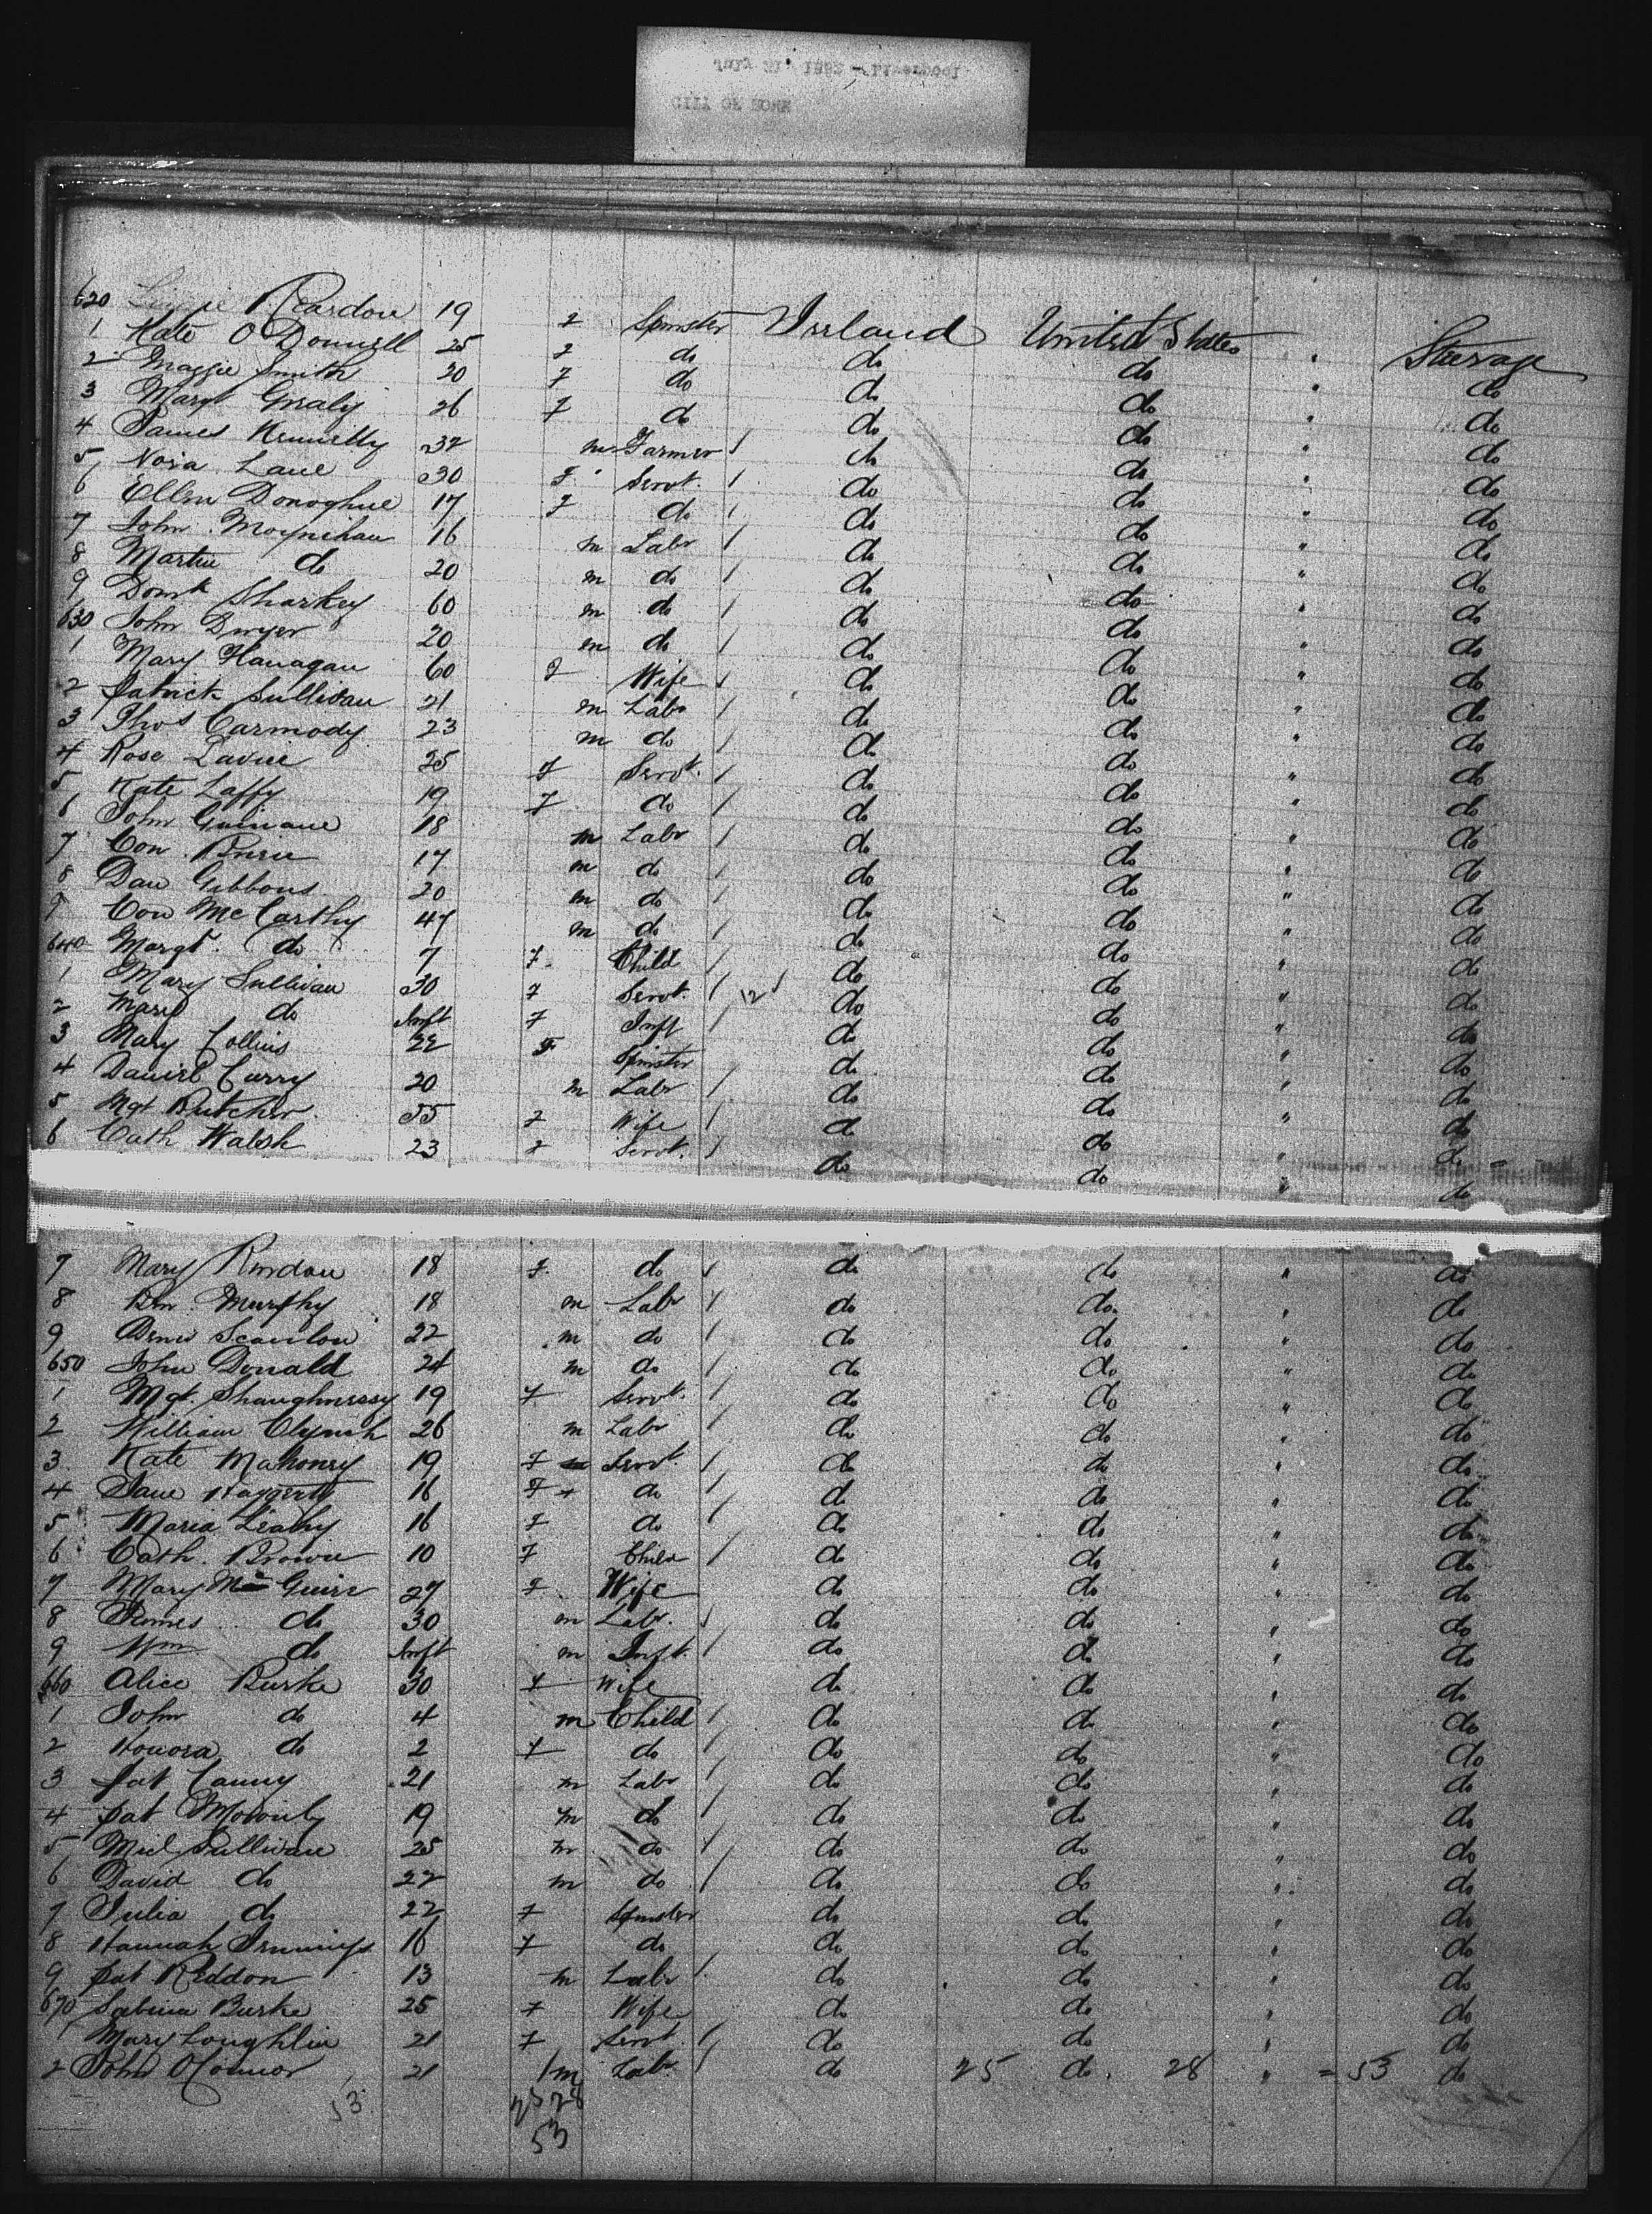 CITY OF ROME
620 Lizzie Reardon 19 F Spinster Ireland United States " Steerage
1 Kate O'Donnell 25 F do do do " do
2 Maggie Smith 20 F do do do " do
3 Margt Grealy 26 F do do do " do
4 James Kennelly 32 m Farmer / do do " do
5 Nora Lane 30 F Servt. / do do " do
6 Ellen Donoghue 17 F do / do do " do
7 John Moynihan 16 m Labr / do do " do
8 Martin do 20 m do / do do " do
9 Domk Sharkey 60 m do / do do " do
630 John Dwyer 20 m do / do do " do
1 Mary Flanagan 60 F Wife / do do " do
2 Patrick Sullivan 21 m Labr / do do " do
3 Thos Carmody 23 m do / do do " do
4 Rose Lavin 25 F Servt. / do do " do
5 Kate Laffy 19 F do / do do " do
6 John Guinane 18 m Labr / do do " do
7 Con 17 m do / do do " do
8 Dan Gibbons 20 m do / do do " do
9 Con McCarthy 47 m do / do do " do
640 Margt. do 7 F Child / do do " do
1 Mary Sullivan 30 F Servt. / 12 do do " do
2 Mary do Inft F Inft / do do " do
3 Mary Collins 22 F Spinster do do " do
4 Daniel Curry 20 m Labr / do do " do
5 Mgt Butcher 55 F Wife / do do " do
6 Cath Walsh 23 F Servt. / do do " do
7 Mary Riordan 18 F do / do do " do
8 Murphy 18 m Labr / do do " do
9 Denis Scanlon 22 m do / do do " do
650 John Donald 24 m do / do do " do
1 Mgt. Shaughnessy 19 F Servt. / do do " do
2 William Clynch 26 m Labr / do do " do
3 Kate Mahoney 19 F Servt. / do do " do
4 Jane Haggerty 16 F do / do do " do
5 Maria Leahy 16 F do do do " do
6 Cath. Brown 10 F Child / do do " do
7 Mary McGuire 27 F Wife do do " do
8 James do 30 m Labr. / do do " do
9 Wm do Inft m Inft. / do do " do
660 Alice Burke 30 F Wife do do " do
1 John do 4 m Child / do do " do
2 Honora do 2 F do / do do " do
3 Pat Canny 21 m Labr / do do " do
4 Pat 19 m do / do do " do
5 Micl Sullivan 25 m do / do do " do
6 David do 22 m do / do do " do
7 Julia do 22 F Spinster do do " do
8 Hannah Jennings 16 F do do do " do
9 Pat Reddon 13 m Labr / do do " do
670 Sabina Burke 25 F Wife do do " do
1 Mary Loughlin 21 F Servt. / do do " do
2 John O'Connor 21 1 m Labr. / do 25 do. 28 " = 53 do
53 25 28
53